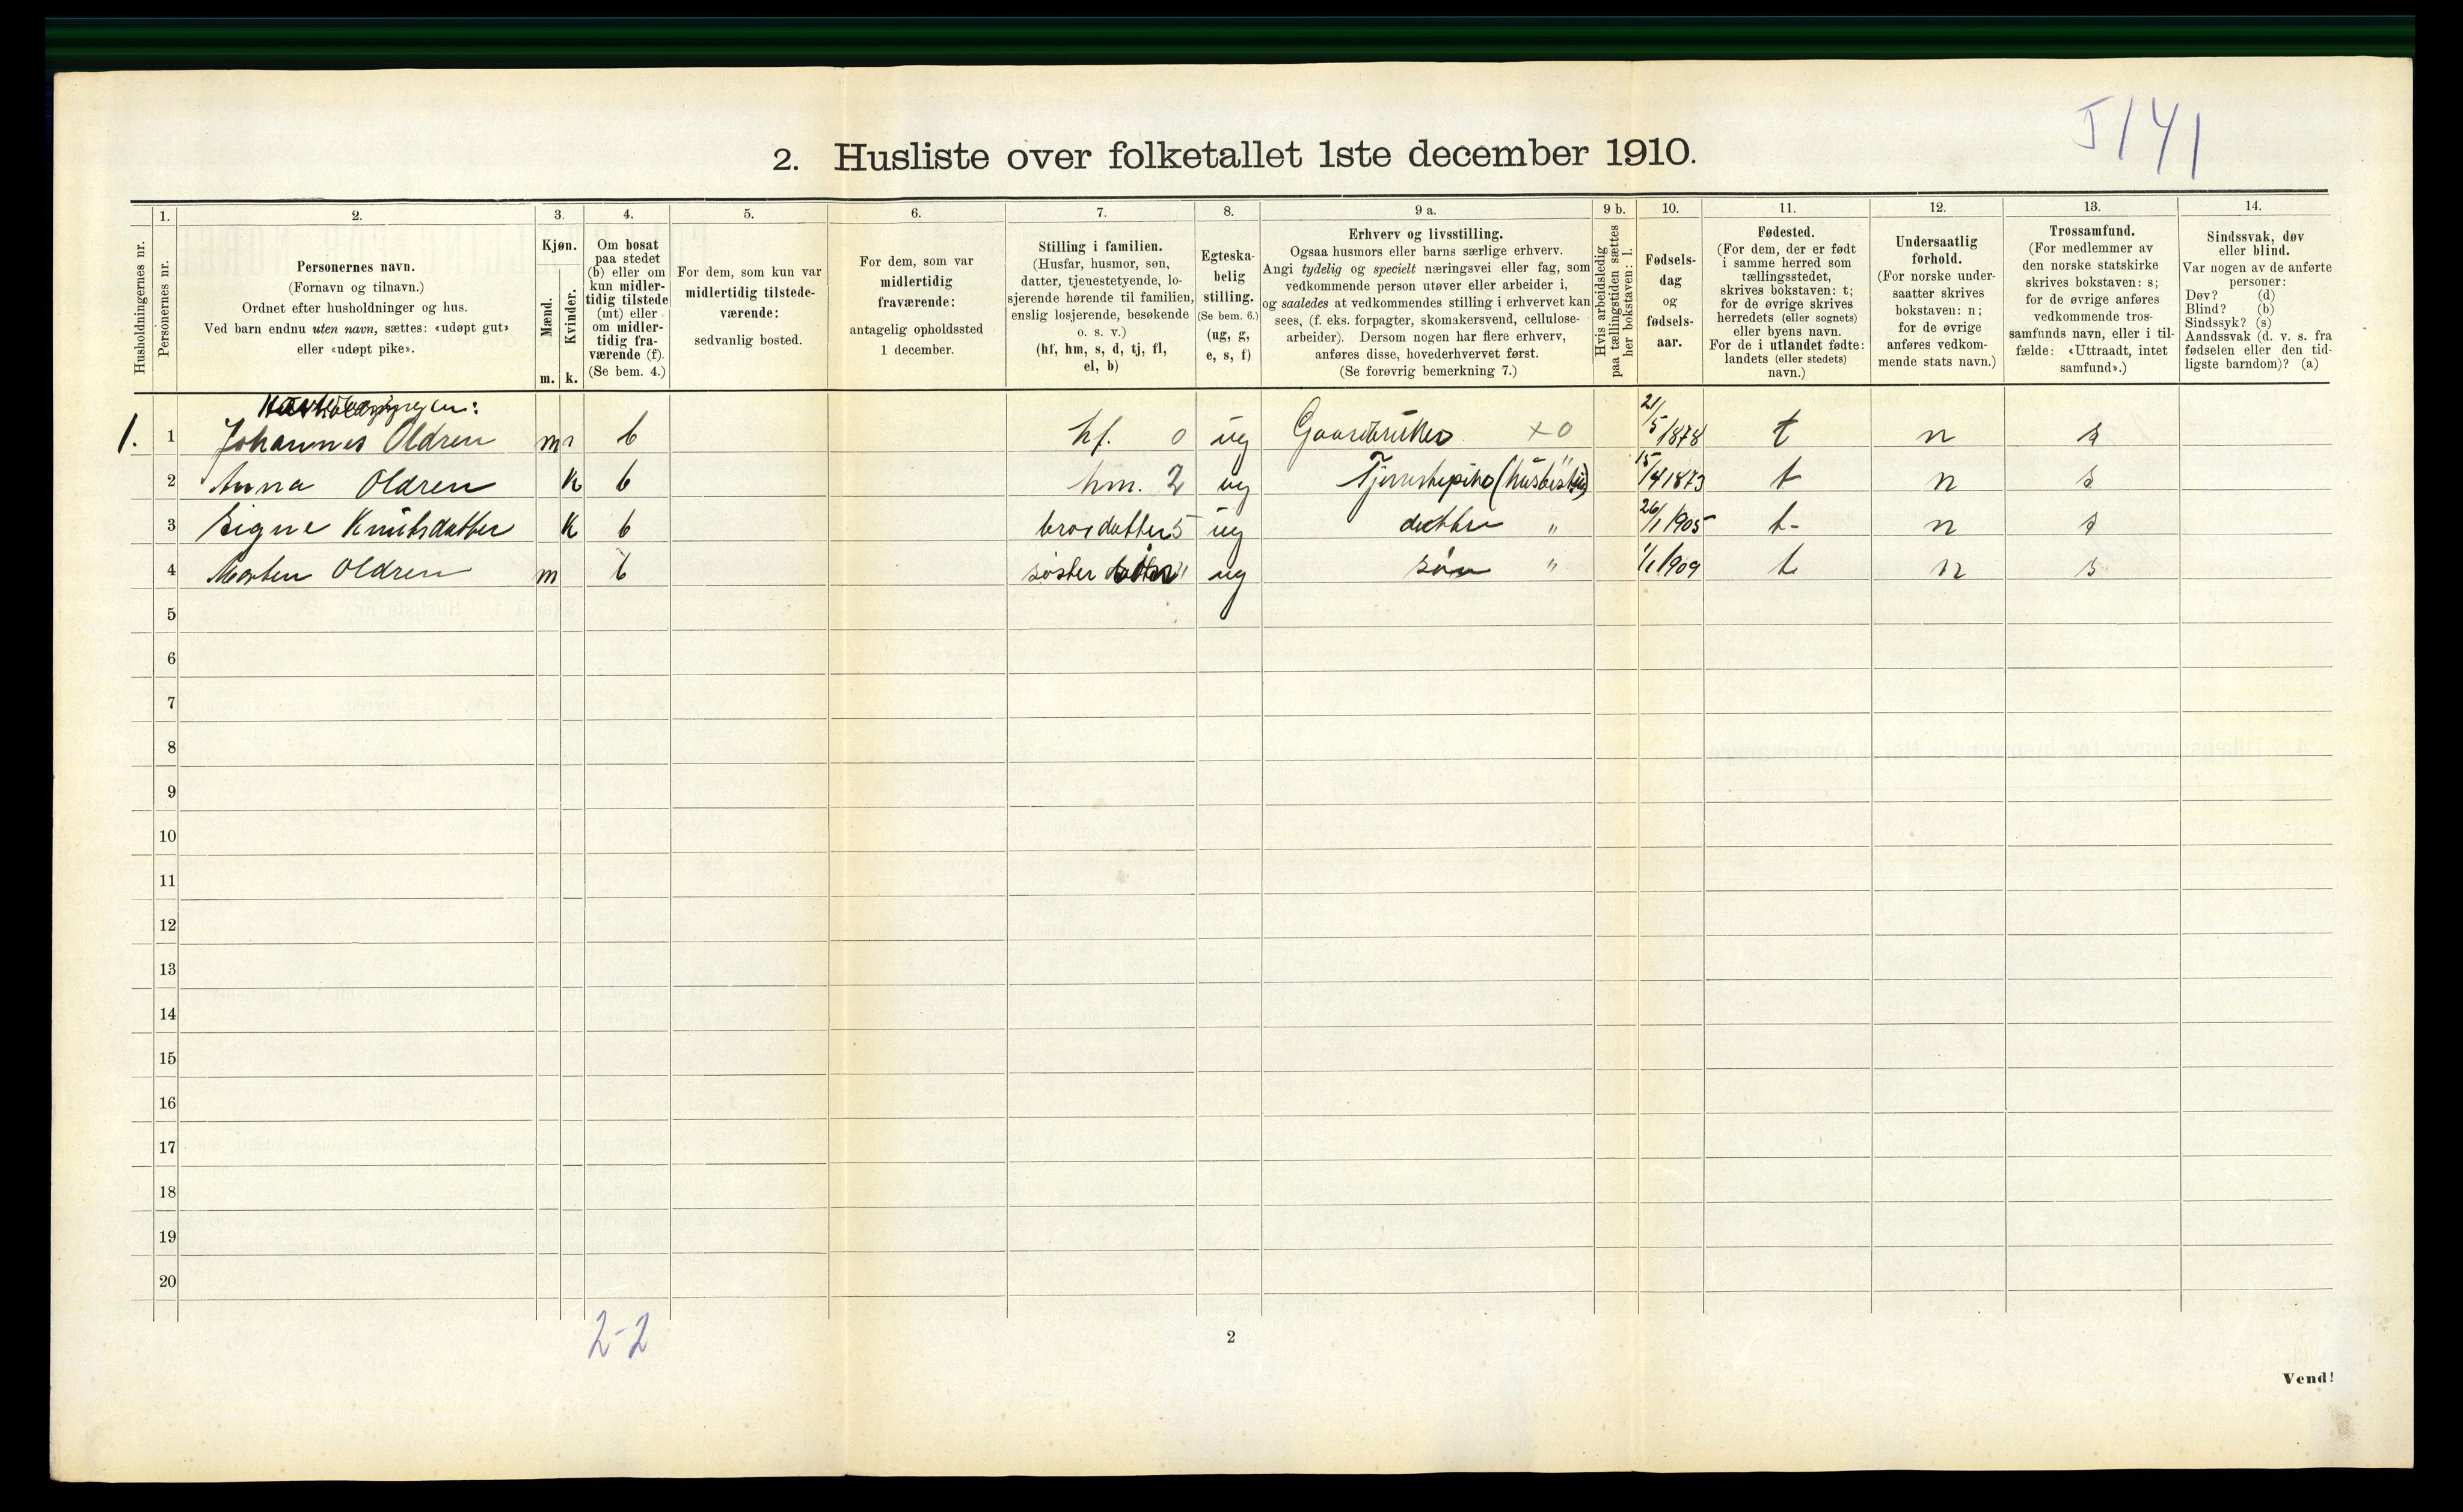 J/41
2. Husliste over folketallet 1ste december 1910.
Husholdningernes nr.
1.
Personernes nr.
2.
Personernes navn.
(Fornavn og tilnavn.)
Ordnet efter husholdninger og hus.
Ved barn endnu uten navn, sættes: «udøpt gut»
eller «udøpt pike».
3.
Kjøn.
Mænd.
Kvinder.
m. k.
4.
Om bosat
paa stedet
(b) eller om
kun midler-
tidig tilstede
(mt) eller
om midler-
tidig fra-
værende (f).
(Se bem. 4.)
5.
For dem, som kun var
midlertidig tilstede-
værende:
sedvanlig bosted.
6.
For dem, som var
midlertidig
fraværende:
antagelig opholdssted
1 december.
7.
Stilling i familien.
(Husfar, husmor, søn,
datter, tjenestetyende, lo-
sjerende hørende til familien,
enslig losjerende, besøkende
o. s. v.)
(hf, hm, s, d, tj, fl,
el, b)
8.
Egteska-
belig
stilling.
(Se bem. 6.)
(ug, g,
e, s, f)
9 a.
Erhverv og livsstilling.
Ogsaa husmors eller barns særlige erhverv.
Angi tydelig og specielt næringsvei eller fag, som
vedkommende person utøver eller arbeider i,
og saaledes at vedkommendes stilling i erhvervet kan
sees, (f. eks. forpagter, skomakersvend, cellulose-
arbeider). Dersom nogen har flere erhverv,
anføres disse, hovederhvervet først.
(Se forøvrig bemerkning 7.)
9 b.
Hvis arbeidsledig
paa tællingstiden sættes
her bokstaven: l.
10.
Fødsels-
dag
og
fødsels-
aar.
11.
Fødested.
(For dem, der er født
i samme herred som
tællingsstedet,
skrives bokstaven: t;
for de øvrige skrives
herredets (eller sognets)
eller byens navn.
For de i utlandet fødte:
landets (eller stedets)
navn.)
12.
Undersaatlig
forhold.
(For norske under-
saatter skrives
bokstaven: n;
for de øvrige
anføres vedkom-
mende stats navn.)
13.
Trossamfund.
(For medlemmer av
den norske statskirke
skrives bokstaven: s;
for de øvrige anføres
vedkommende tros-
samfunds navn, eller i til-
fælde: «Uttraadt, intet
samfund».)
14.
Sindssvak, døv
eller blind.
Var nogen av de anførte
personer:
Døv? (d)
Blind? (b)
Sindssyk? (s)
Aandssvak (d. v. s. fra
fødselen eller den tid-
ligste barndom)? (a)
1. 1 Johannes Oldren m b hf. 0 ug Gaardbruker x0 21/5 1878 t n s
2 Anna Oldren k b hm. 2 ug Tjenestepike 15/4 1873 t n s
3 Signe Knutsdatter k b brordatter 5 ug datter " 26/1 1905 t n s
4 Morten Oldren m b søster ug søn " 1/1 1909 t n s
5
6
7
8
9
10
11
12
13
14
15
16
17
18
19
20
2-2
2
Vend!